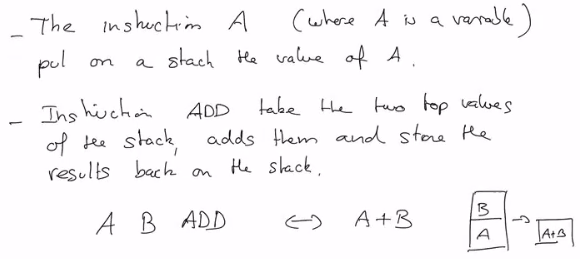 - The instruction A (where A is a variable)
put on a stack the value of A.
- Instruction ADD take the two top values
of the stack, adds them and store the
results back on the stack.
A B ADD <-> A+B
B
A -> A+B